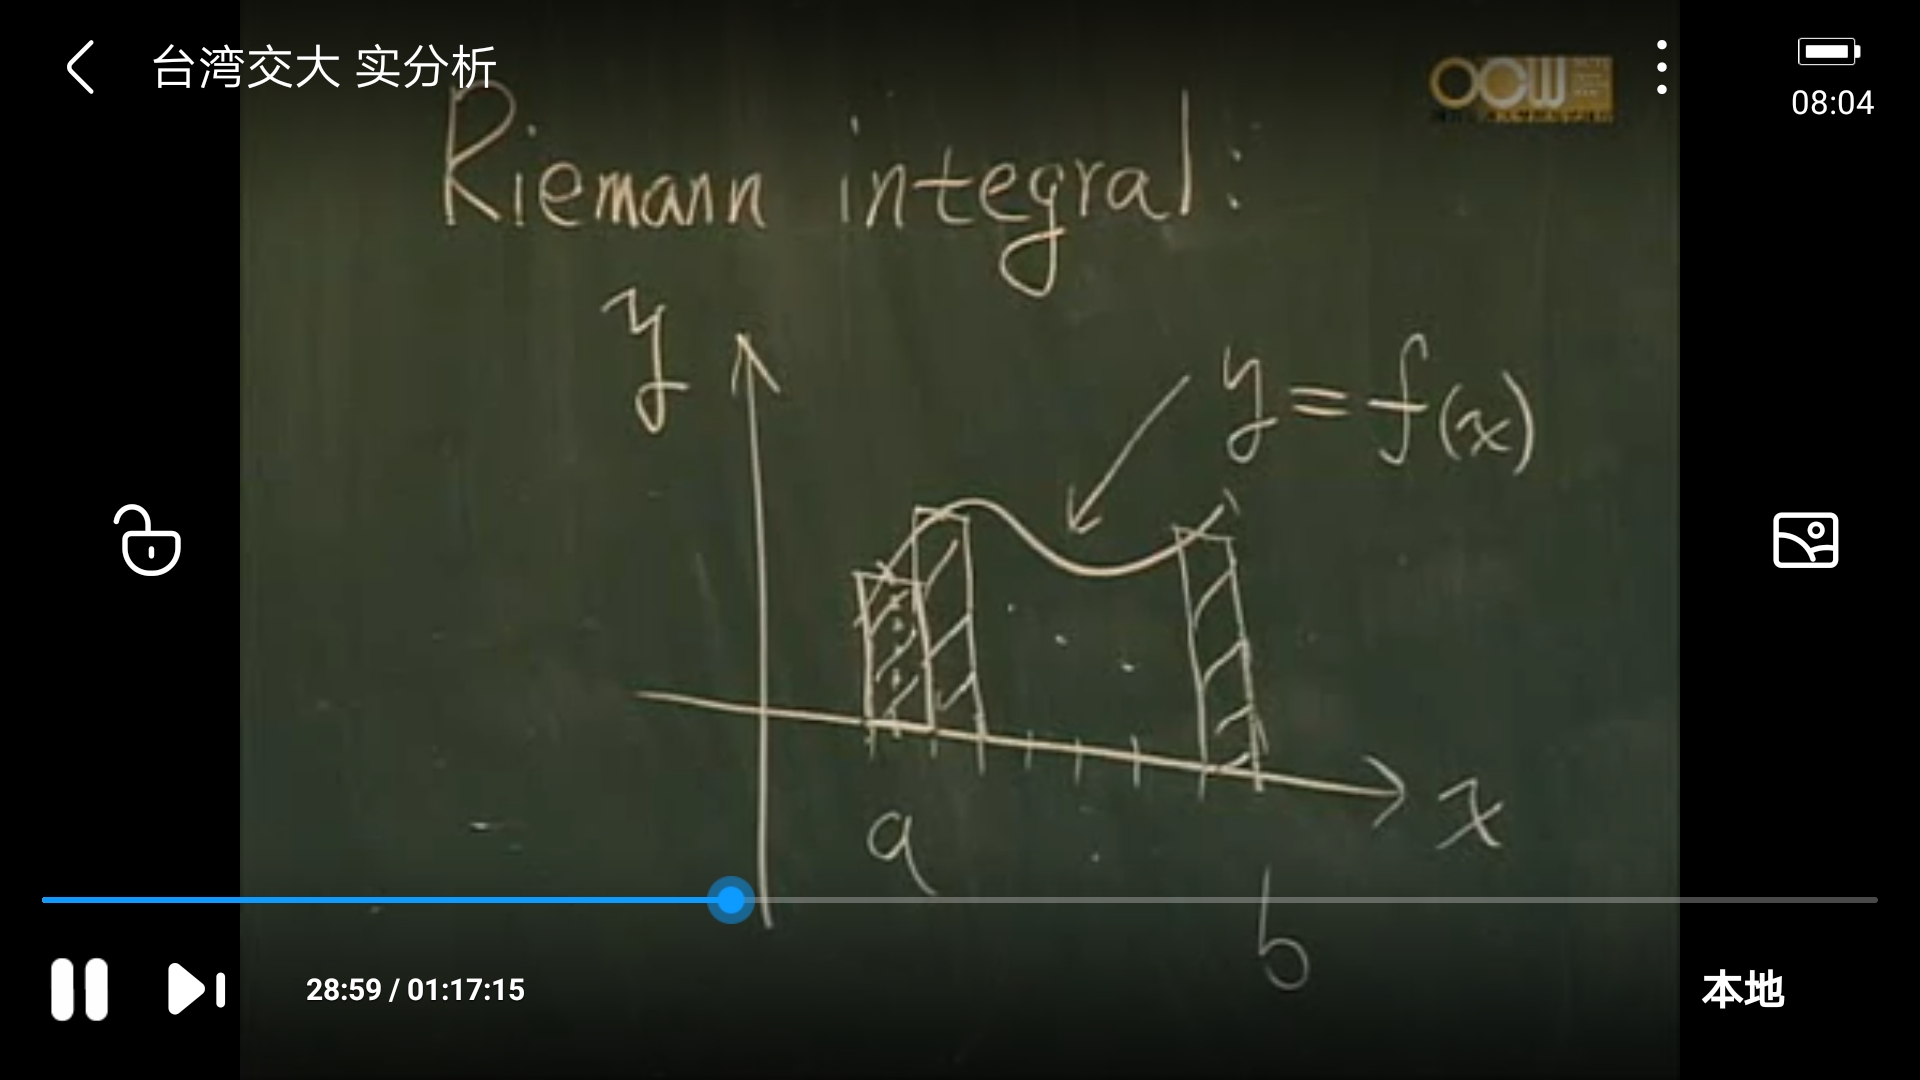 台湾交大 实分析
OCW
08:04
Riemann integral:
y
y = f(x)
x
a
b
28:59 / 01:17:15
本地